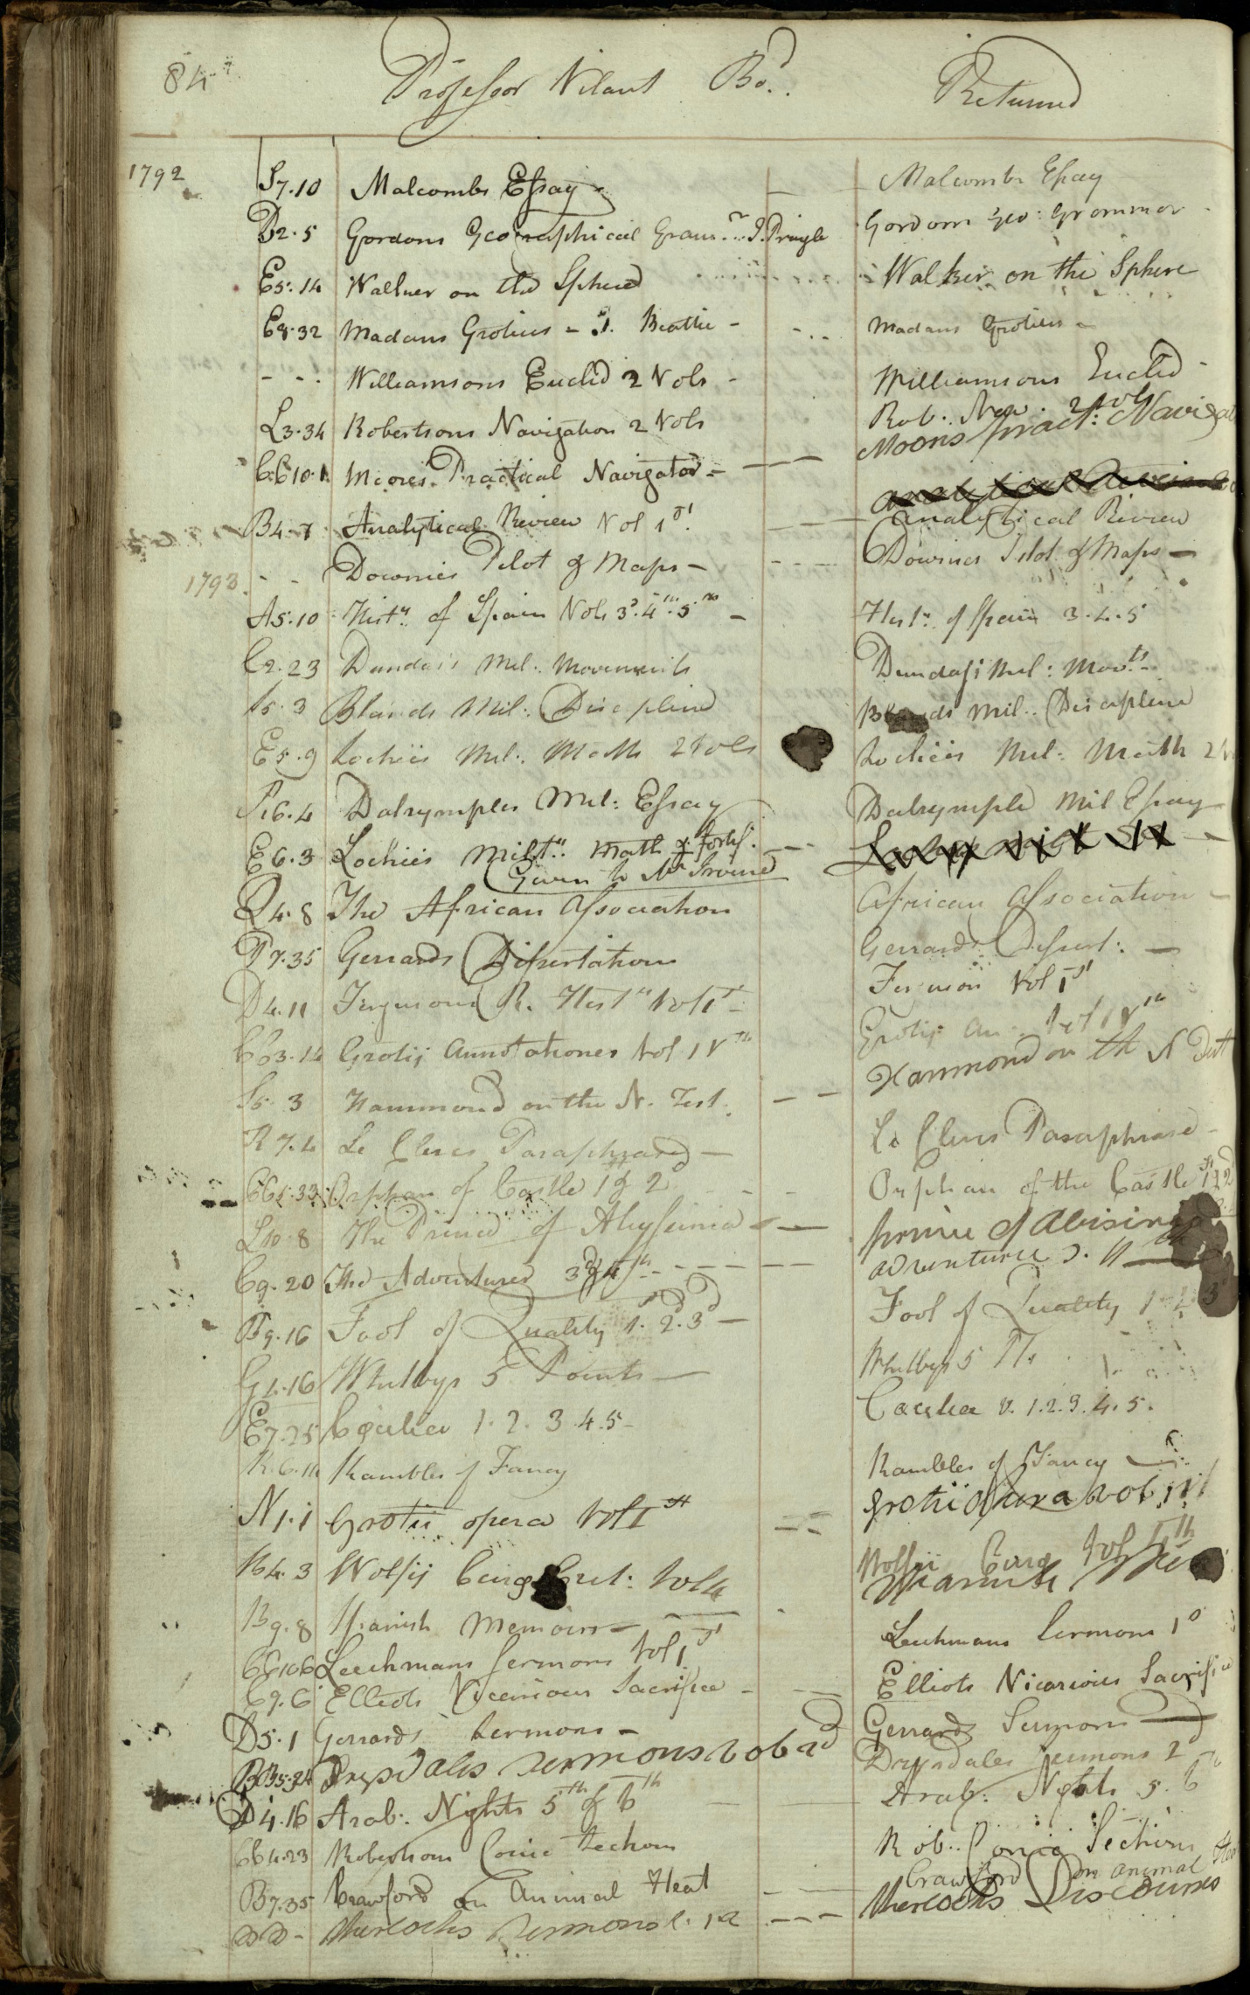 84 Professor Vilant Bod. Returned
1792 S7.10 Malcombs Essay Malcombs Essay
D2.5 Gordons Geographical Gram.r J. Pringle Gordons Geo: Grammar
E5.14 Walker on the Sphere Walker on the Sphere
E8.32 Madans Grotius - J. Beattie - Madans Grotius -
- - - Williamsons Euclid 2 Vols - Williamsons Euclid -
L3.34 Robertsons Navigation 2 Vols Rob. Nav. 2 vols
CC10.1 Moores Practical Navigator - Moons pract: Navigat
B4.7 Analytical Review Vol 1st Analytical Review
1793 - - Downies Pilot & Maps - Downies Pilot & Maps -
A5.10 Histy. of Spain Vols 3d. 4th. 5th - Histy. of Spain 3.4.5
C2.23 Dundass Mil: Movements Dundass Mil: Movts.
S5.3 Blands Mil: Discipline Blands Mil: Discipline
E5.9 Lochies Mil: Math 2 Vols Lochies Mil: Math 2 V
P.6.4 Dalrymples Mil: Essay Dalrymple Mil Essay
E6.3 Lochies Milty. Math & fortif.
Given to Mr Irvine
Q4.8 The African Association African Association -
P7.35 Gerrards Dissertations Gerrards Dissert: -
D4.11 Fergusons R. Histy Vol 1st Ferguson Vol 1st
CC3.14 Grotij Annotationes Vol IVth Grotij An. Vol IVth
S5.3 Hammond on the N. Test. Hammond on th N Test
R7.4 Le Clercs Paraphrase - Le Clercs Paraphrase -
CC1.33 Orphan of Castle 1 & 2d Orphan of the Castle 1st 2d
L10.8 The Prince of Abyssinia - prince of Abisinia
C9.20 The Adventurer 3d & 4th adventurer 3. 4
P9.16 Fool of Quality 1. 2. 3d - Fool of Quality 1 2 3
G1.16 Whitbys 5 Points - Whitbys 5 Pts.
E7.25 Cecilia 1. 2. 3. 4. 5 - Cecilia V. 1. 2. 3. 4. 5.
R.6.14 Rambles of Fancy Rambles of Fancy
N1.1 Grotii opera Vol 1st grotii opera vol 1st
R4.3 Wolfij Curs Vol 4 Wolfii Curs
B9.8 Spanish Memoirs -
CC10.6 Leechmans Sermons Vol 1st Leechmans Sermons 1o
C9.6 Elliots Vicarious Sacrifice - Elliots Vicarious Sacrifice
D5.1 Gerrards Sermons - Gerrards Sermons
BB5.24 Drysdales sermons vol 2d Drysdales sermons 2d
D4.16 Arab: Nights 5th & 6th Arab: Nights 5. 6th
CC4.23 Robertsons Conic Sections Rob. Conic Sections
B7.35 Crawford on Animal Heat Crawford on animal
DD - Sherlocks Sermons 1. 2 Sherlocks Discourses